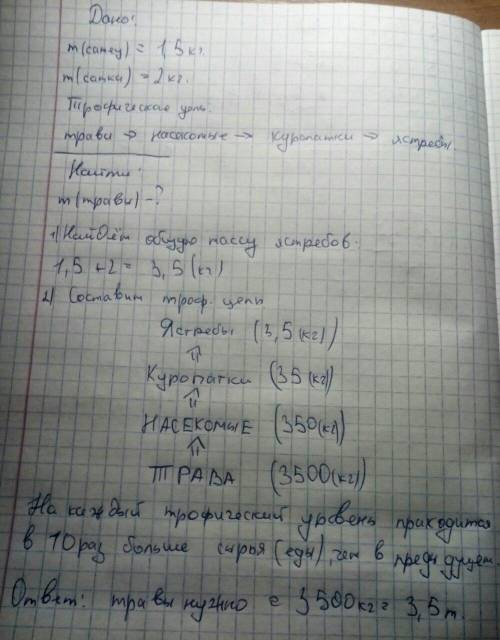 Дано:
m(самец) = 1,5 кг.
m(самки) = 2 кг.
Трофическая цепь:
трава → насекомые → куропатки → ястребы
Найти:
m(травы) - ?
1) Найдём общую массу ястребов.
1,5 + 2 = 3,5 (кг)
2) Составим троф. цепь
Ястребы (3,5 (кг))
⇑
Куропатки (35 (кг))
⇑
НАСЕКОМЫЕ (350 (кг))
⇑
ТРАВА (3500 (кг))
На каждый трофический уровень приходится
в 10 раз больше сырья (еды), чем в предыдущем.
Ответ: травы нужно = 3500 кг = 3,5 т.